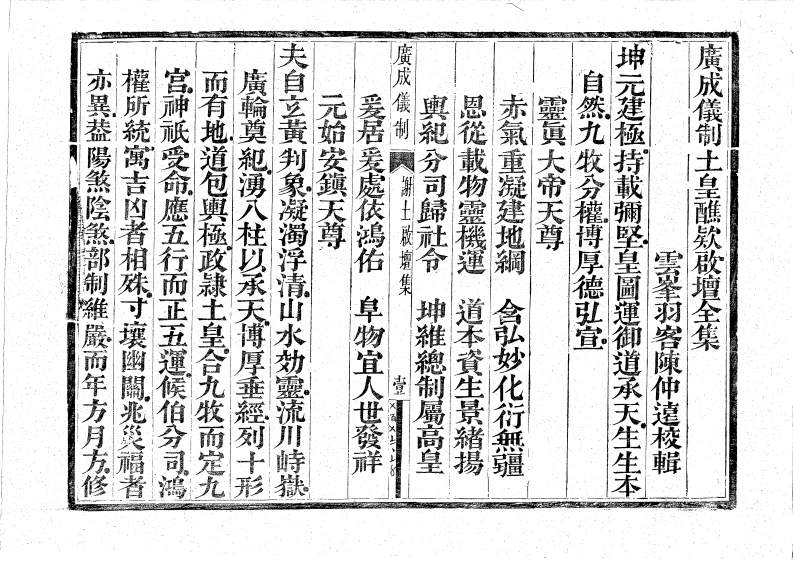 廣成儀制土皇醮欵啟壇全集
雲峯羽客陳仲遠校輯
坤元建極持載彌堅皇圖運御道承天生生本
自然九牧分權博厚德弘宣
靈眞大帝天尊
赤氣重凝建地綱　含弘妙化衍無疆
恩從載物靈機運　道本資生景緒揚
輿紀分司歸社令　坤維總制屬高皇
廣成儀制　謝土啟壇集　壹
爰居爰處依鴻佑　阜物宜人世發祥
元始安鎮天尊
夫自玄黃判象凝濁浮清山水効靈流川峙嶽
廣輪奠紀湧八柱以承天博厚垂經列十形
而有地道包輿極政隷土皇合九牧而定九
宮神祇受命應五行而正五運候伯分司鴻
權所統寓吉凶者相殊寸壤幽關兆災福者
亦異葢陽煞陰煞部制維嚴而年方月方修